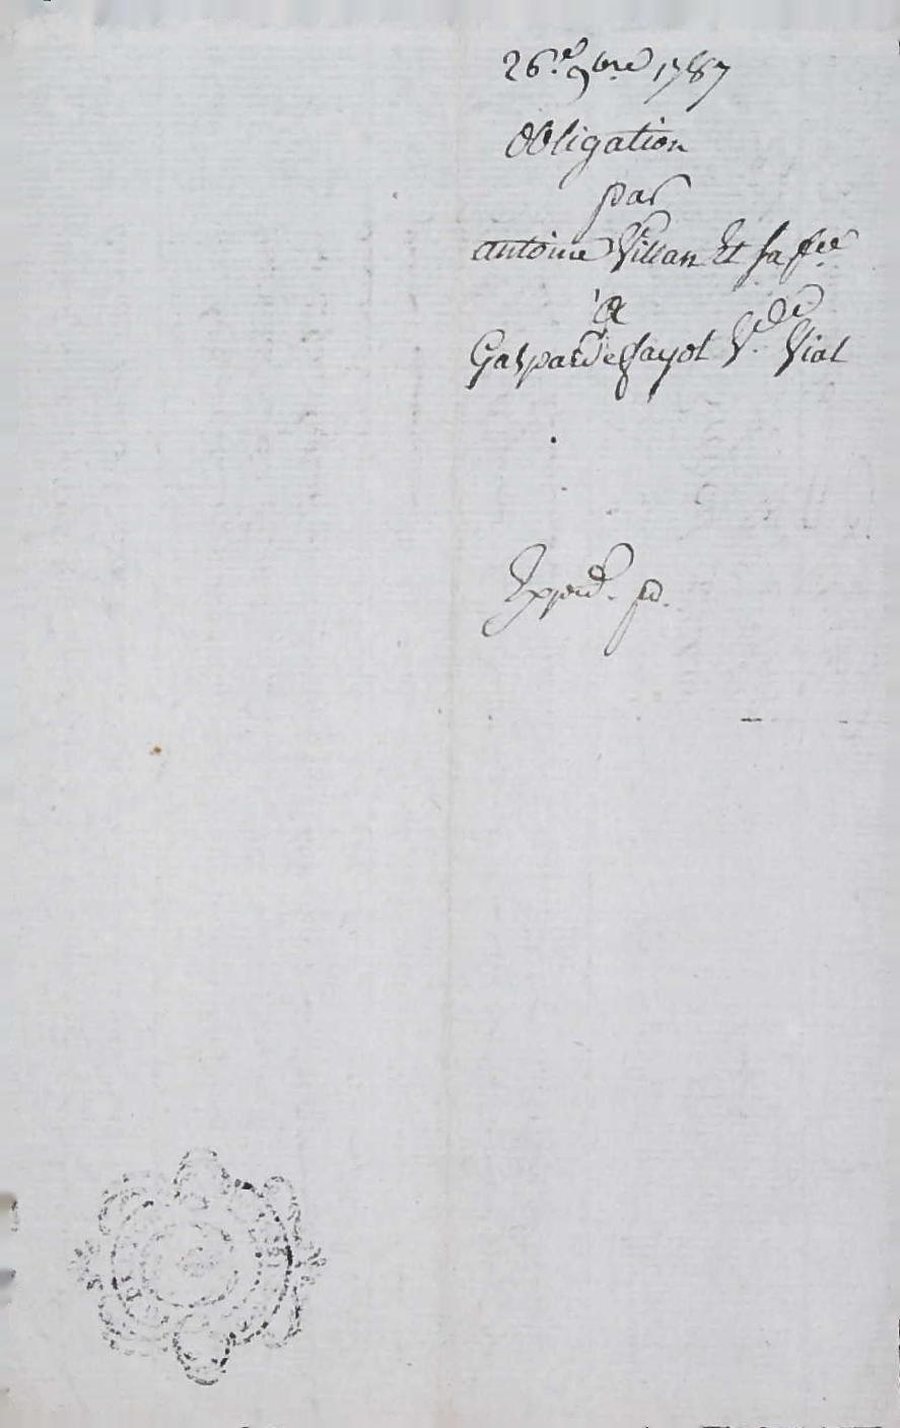 26.e 9bre 1787
obligation
par
antoine Villan Et sa fe.e
a
Gasparde fayot V.e de Vial
Expd. p.